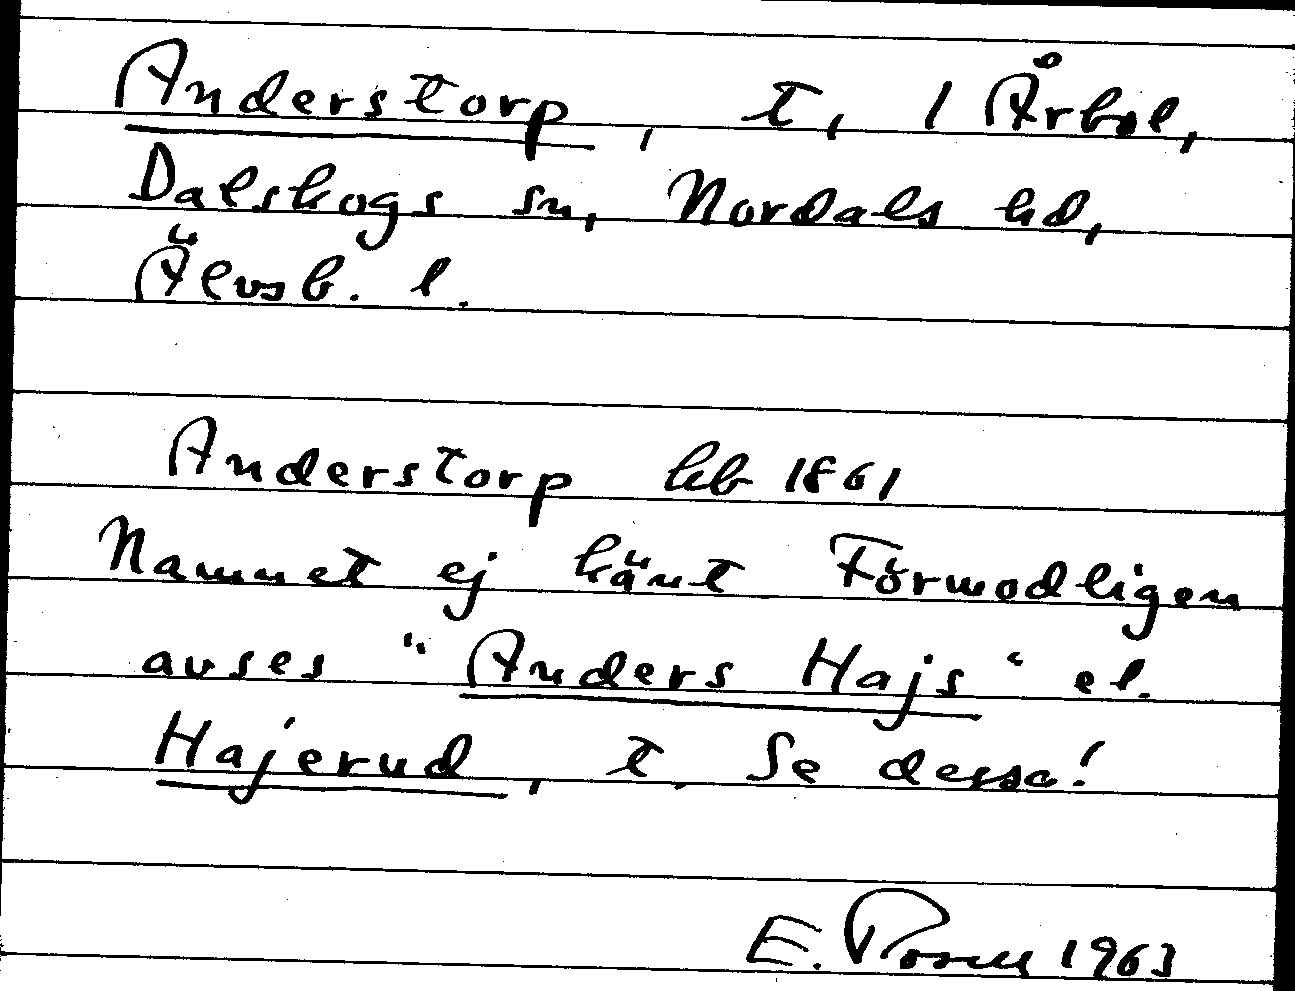 Anderstorp, t, 1 Årbol,
Dalskogs sn, Nordals hd,
Älvsb. l.
Anderstorp hb 1861
Namnet ej känt Förmodligen
avses "Anders Hajs" el.
Hajerud, t. Se dessa!
E. 1963